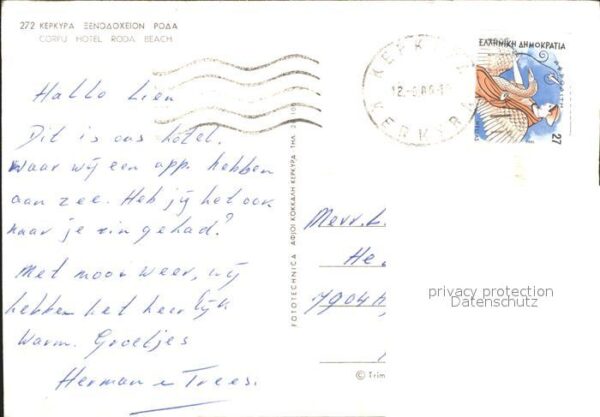 272 ΚΕΡΚΥΡΑ ΞΕΝΟΔΟΧΕΙΟΝ ΡΟΔΑ
CORFU HOTEL RODA BEACH
Hallo Lien
Dit is ons hotel.
waar wij een app. hebben
aan zee. Heb jij het ook
naar je zin gehad?
Met mooi weer, wij
hebben het heerlijk
warm. Groetjes
Herman en Trees.
FOTOTECHNICA ΑΦΙΟΙ ΚΟΚΚΑΛΗ ΚΕΡΚΥΡΑ ΤΗΛ.
ΚΕΡΚΥΡΑ
ΚΕΡΚΥΡΑ
ΕΛΛΗΝΙΚΗ ΔΗΜΟΚΡΑΤΙΑ
27
Mevr. L.
He
7904
privacy protection
Datenschutz